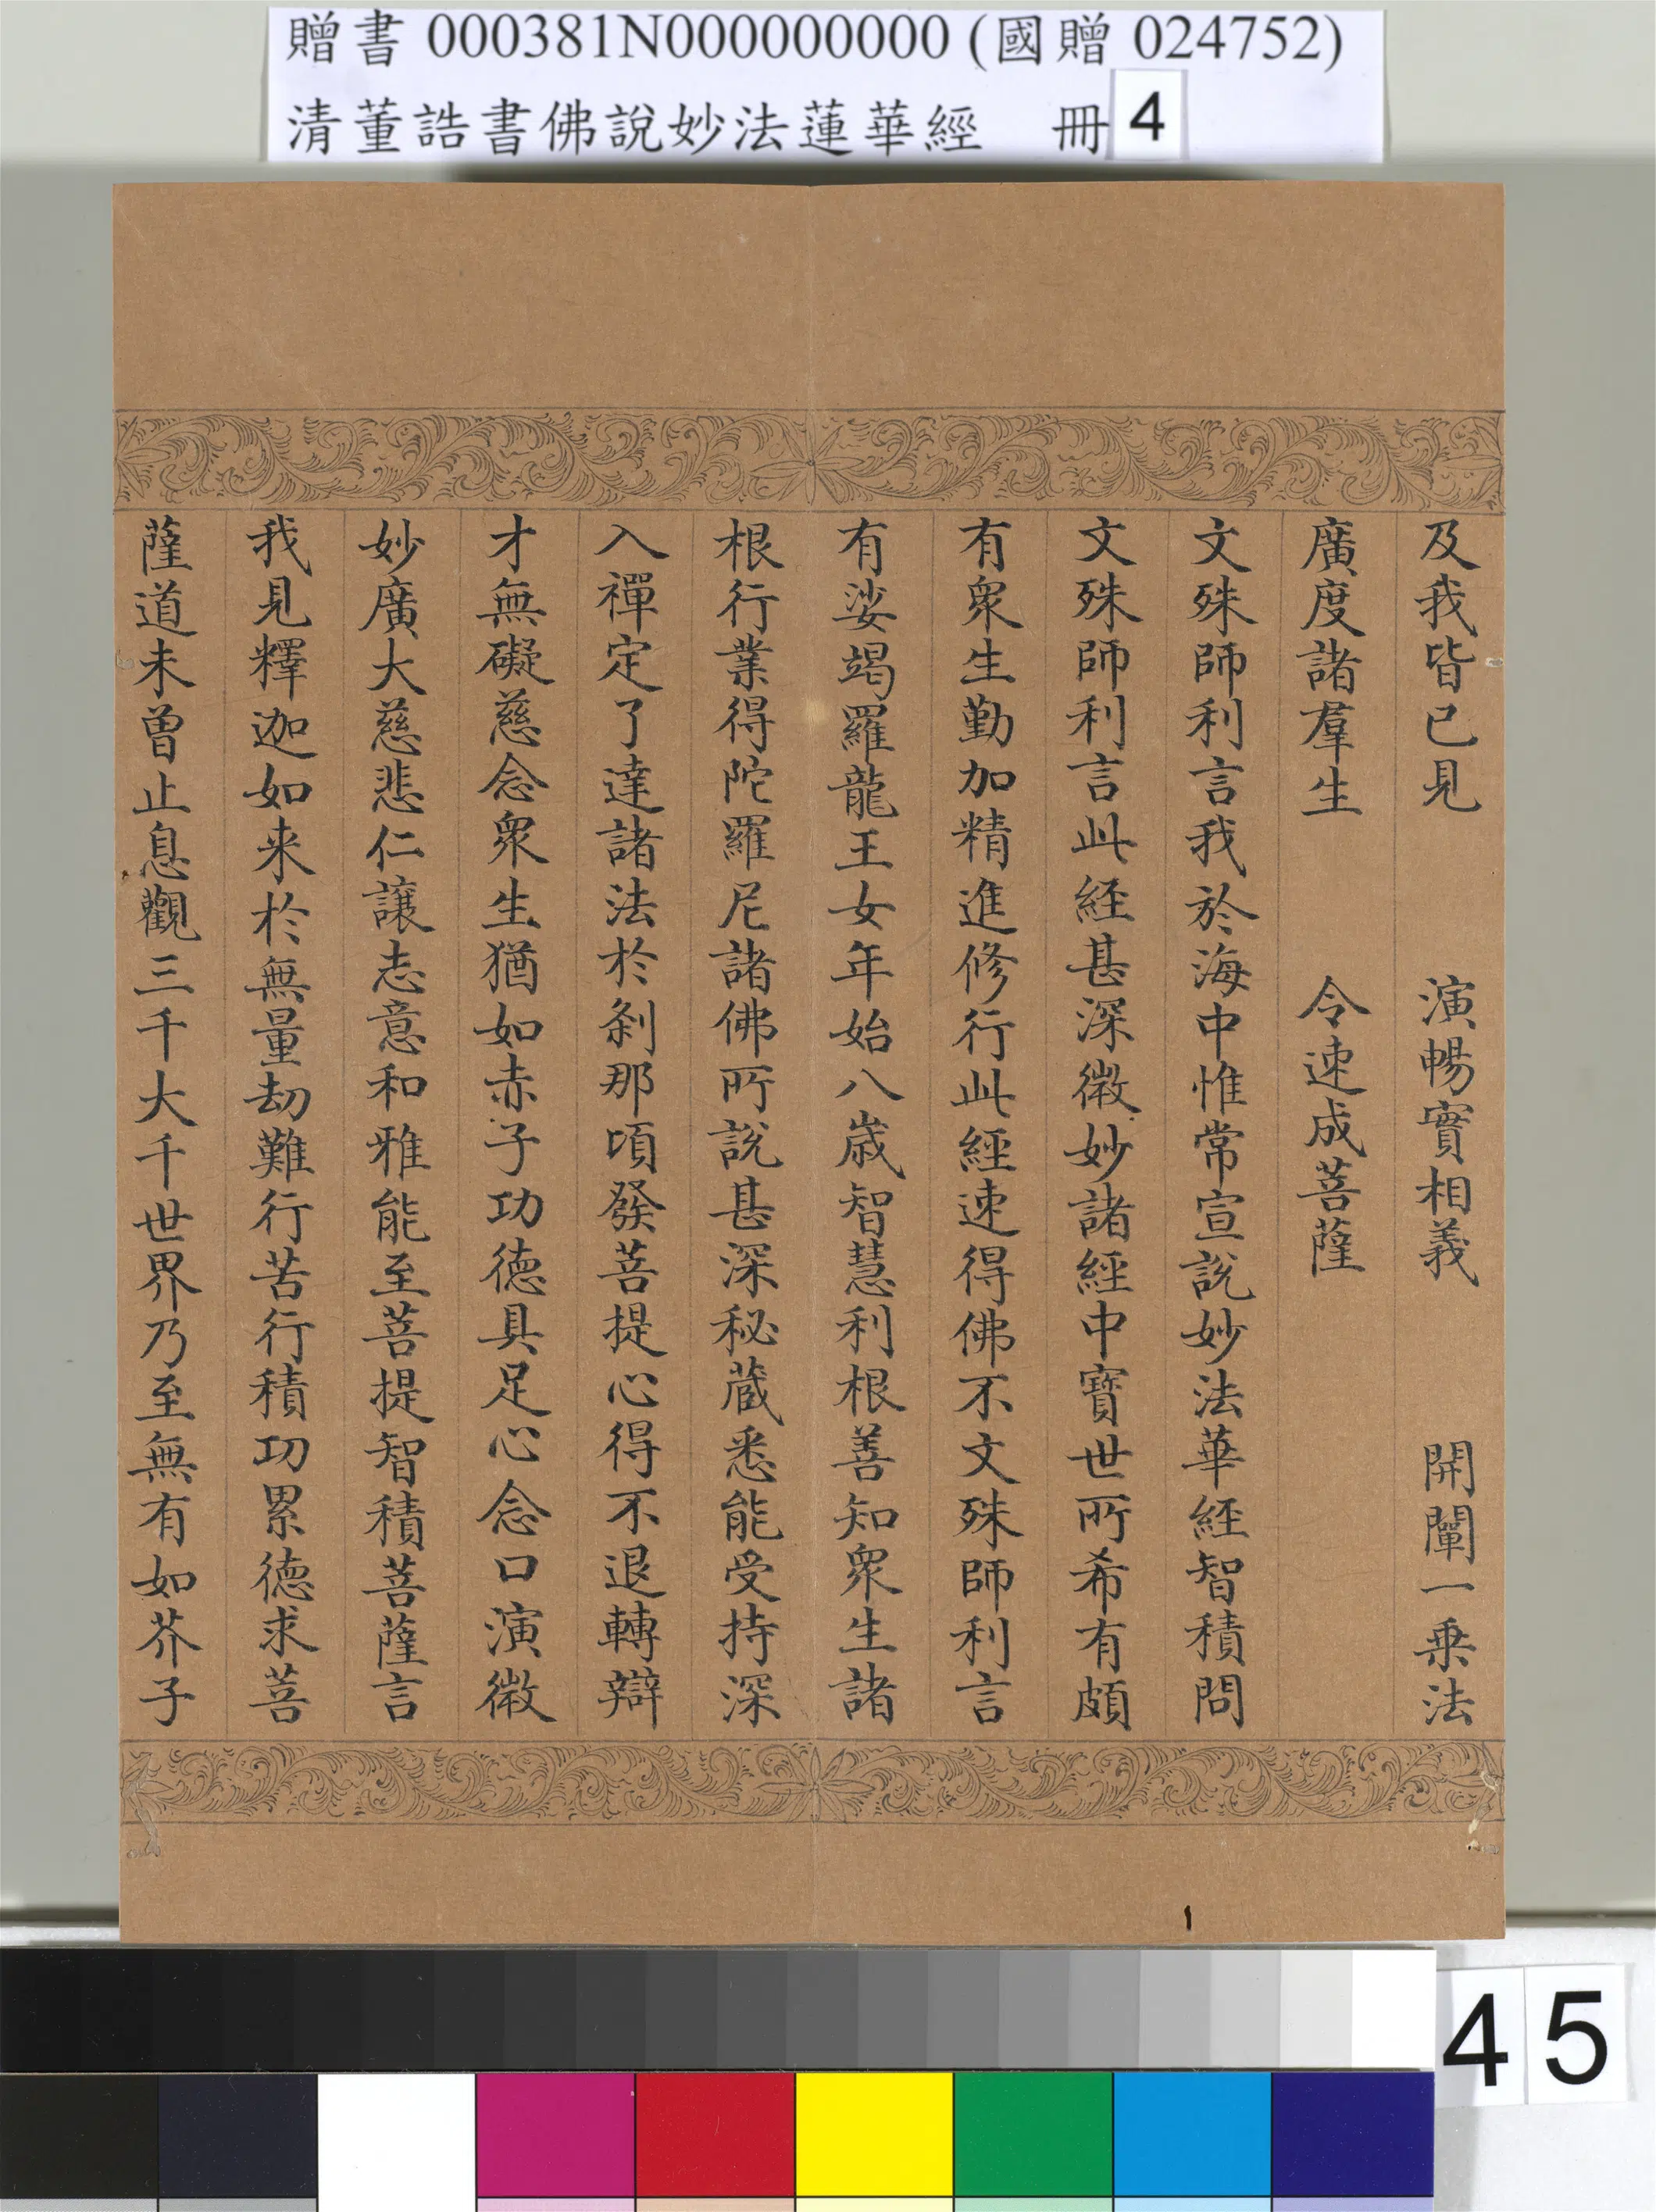 贈書 000381N000000000 (國贈 024752)
清董誥書佛說妙法蓮華經 冊 4
及我皆已見 演暢實相義 開闡一乗法
廣度諸羣生 令速成菩薩
文殊師利言我於海中惟常宣說妙法華經智積問
文殊師利言此經甚深微妙諸經中寶世所希有頗
有衆生勤加精進修行此經速得佛不文殊師利言
有娑竭羅龍王女年始八歲智慧利根善知衆生諸
根行業得陀羅尼諸佛所說甚深秘蔵悉能受持深
入禪定了達諸法於剎那頃發菩提心得不退轉辯
才無礙慈念衆生猶如赤子功德具足心念口演微
妙廣大慈悲仁讓志意和雅能至菩提智積菩薩言
我見釋迦如来於無量劫難行苦行積功累德求菩
薩道未曾止息觀三千大千世界乃至無有如芥子
45